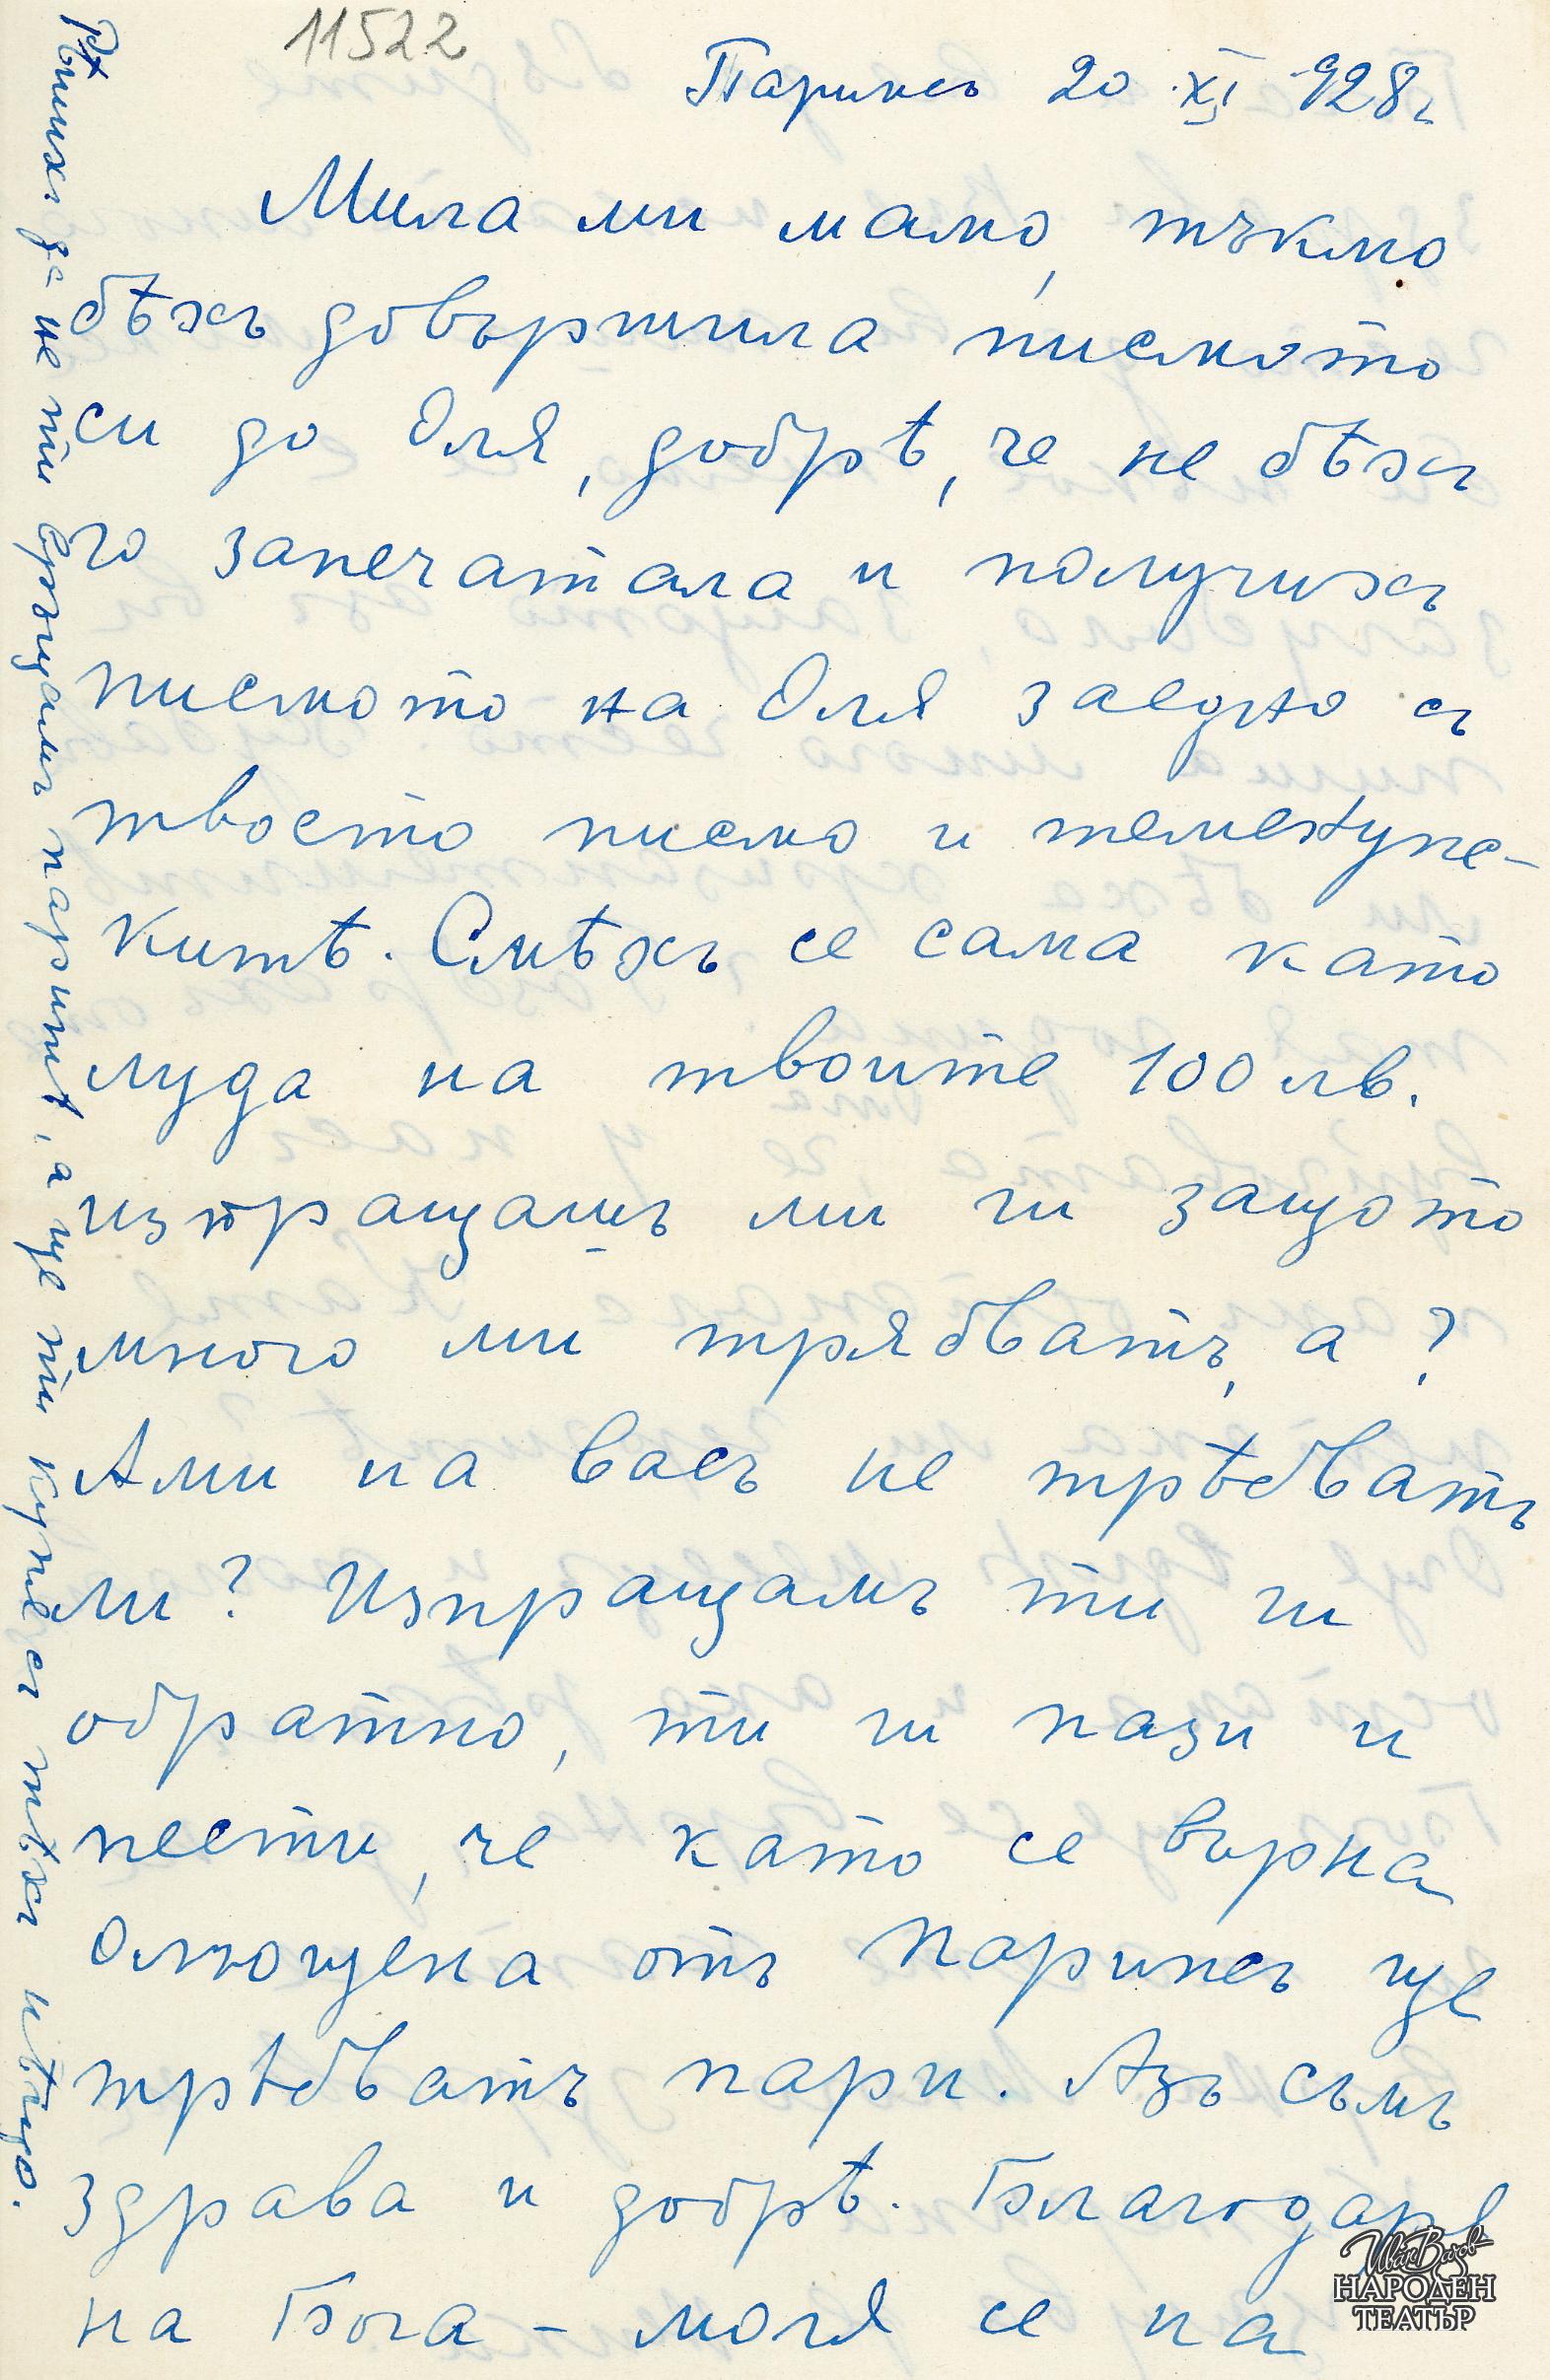 11522
Парижъ 20 XI 928 г
Мила ми мамо, тъкмо
бѣхъ довършила писмото
си до Оля, добрѣ, че не бѣхъ
го запечатала и получихъ
писмото на Оля заедно съ
твоето писмо и теменуже-
житѣ. Смѣхъ се сама като
луда на твоите 100 лв.
изпращашъ ми ги защото
много ми трябватъ, а?
Ами на васъ не трѣбватъ
ли? Изпращамъ ти ги
обратно, ти ги пази и
пести, че като се върна
олющена отъ Парижъ ще
трѣбватъ пари. Азъ съмъ
здрава и добрѣ. Благодаря
на Бога – моля се на
Рѣшихъ да не ти връщамъ паритѣ, а ще ти купя съ тѣхъ нѣщо.
Иван Вазов
НАРОДЕН
ТЕАТЪР